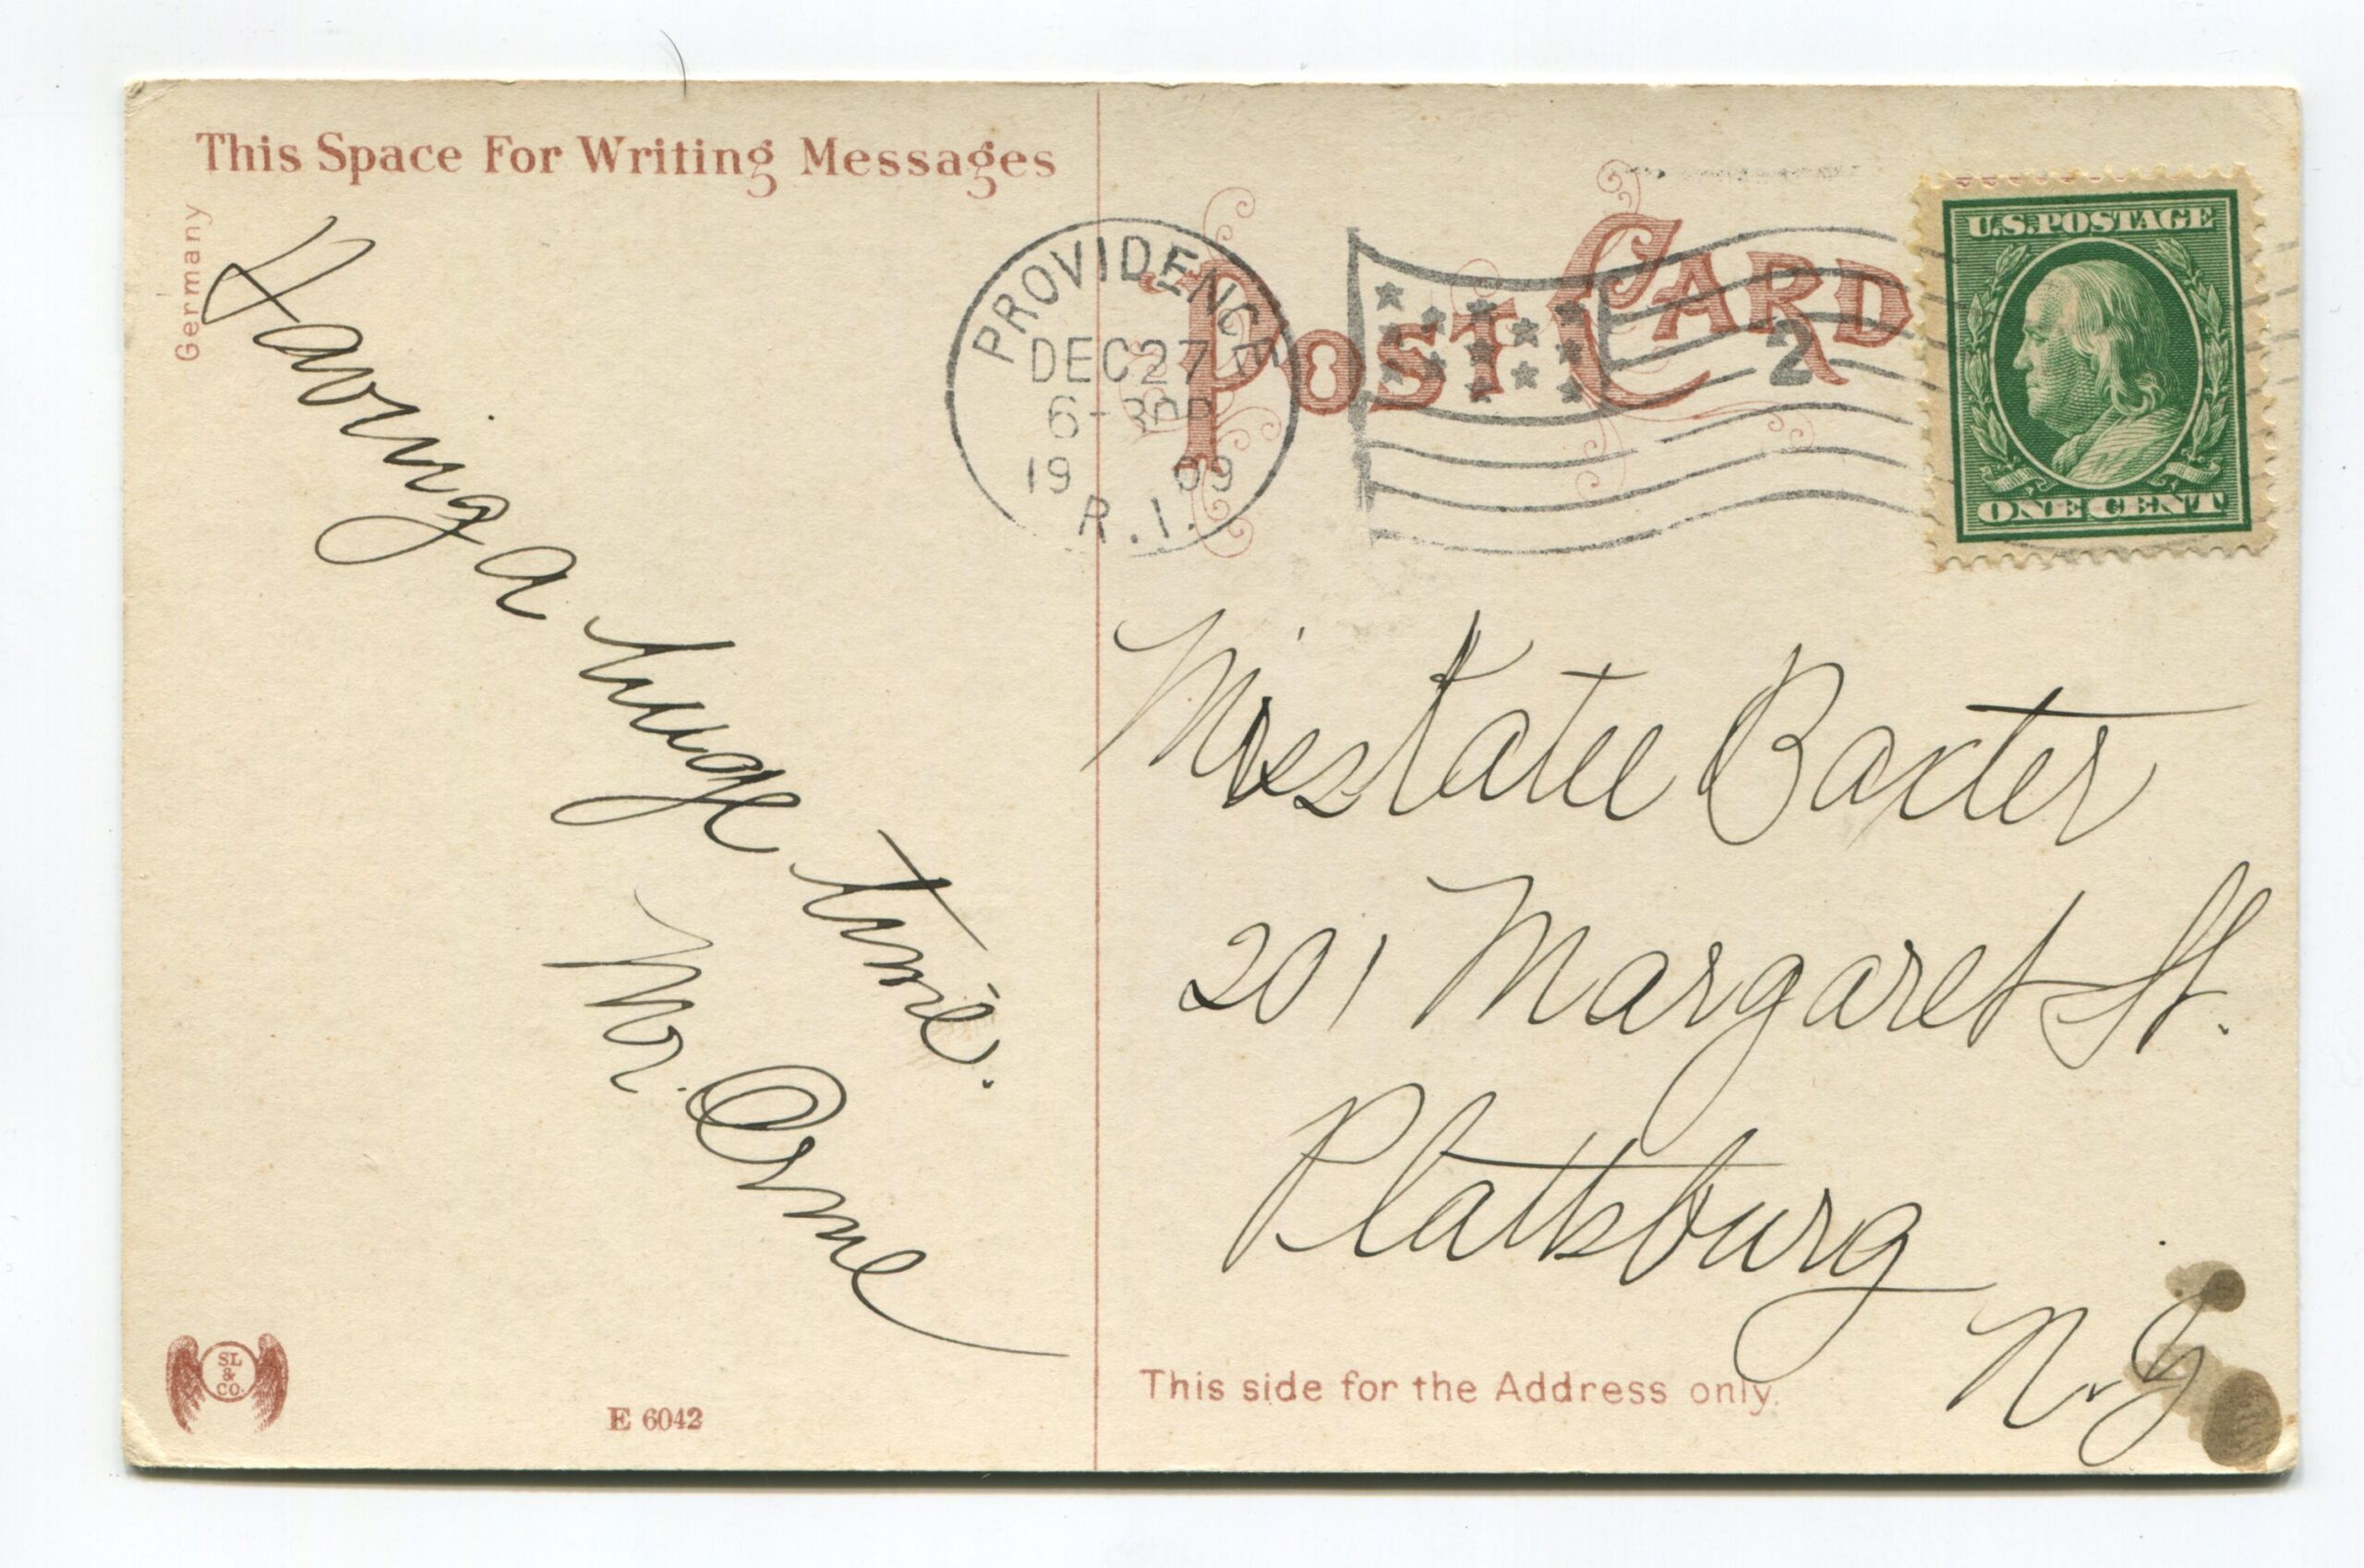 This Space For Writing Messages
Germany
Having a huge time.
Mr. Orne
SL
&
CO.
E 6042
PROVIDENCE
DEC 27
6-30P
1909
R.I.
POST CARD
2
U.S. POSTAGE
ONE CENT
Miss Katee Baxter
201 Margaret St.
Plattsburg
N.Y
This side for the Address only.